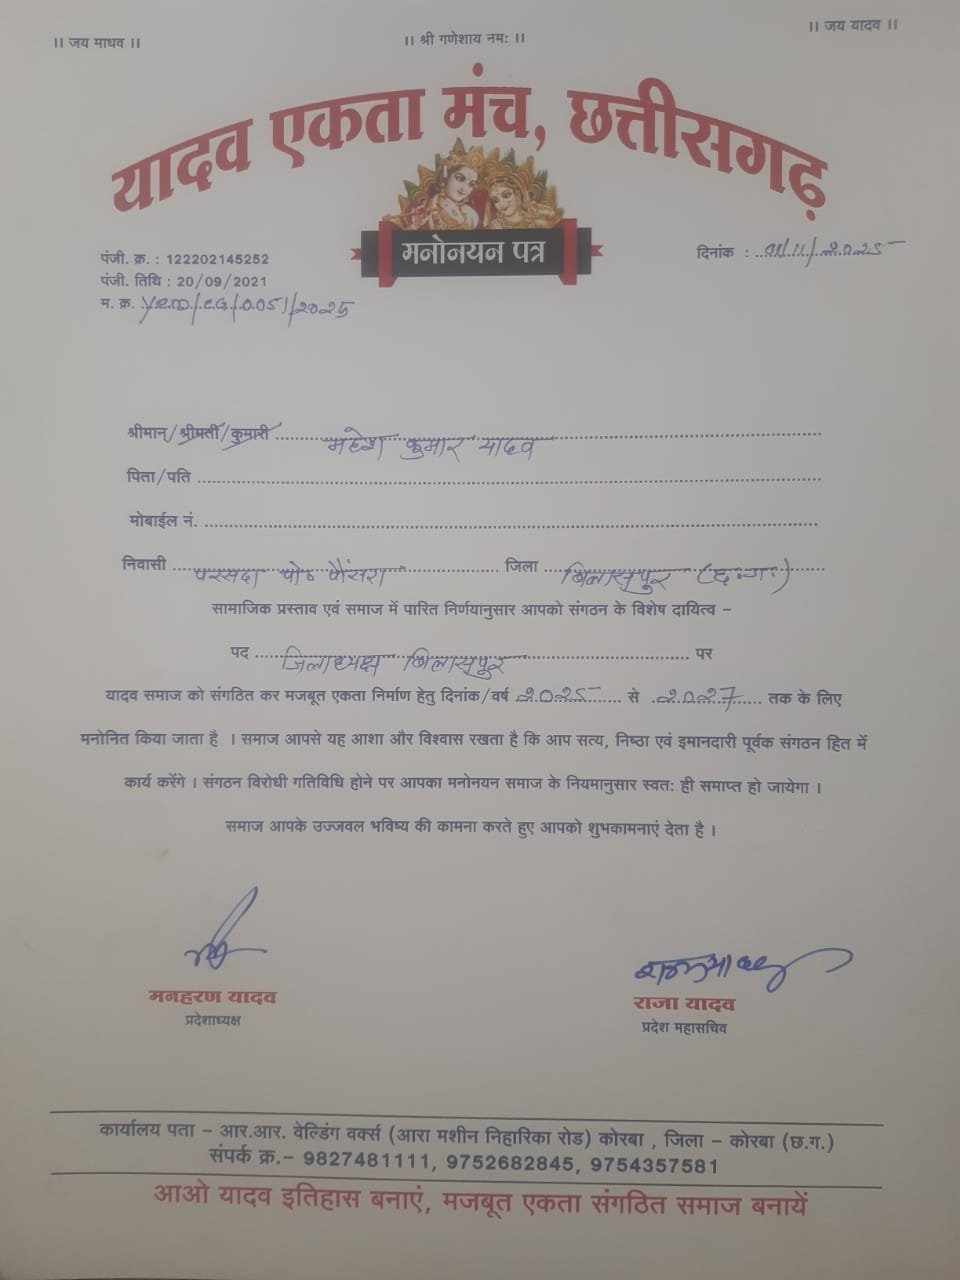 ।। जय माधव ।। ।। श्री गणेशाय नमः ।। ।। जय यादव ।।
यादव एकता मंच, छत्तीसगढ़
मनोनयन पत्र
पंजी. क्र. : 122202145252
दिनांक : 01/11/2025
पंजी. तिथि : 20/09/2021
म. क्र. Y.E.M/C.G/0.051/2025
श्रीमान्/श्रीमती/कुमारी महेश कुमार यादव
पिता/पति
मोबाईल नं.
निवासी परसदा पो० पौंसरा जिला बिलासपुर (छ.ग.)
सामाजिक प्रस्ताव एवं समाज में पारित निर्णयानुसार आपको संगठन के विशेष दायित्व –
पद जिलाध्यक्ष बिलासपुर पर
यादव समाज को संगठित कर मजबूत एकता निर्माण हेतु दिनांक/वर्ष 2025 से 2027 तक के लिए
मनोनित किया जाता है । समाज आपसे यह आशा और विश्वास रखता है कि आप सत्य, निष्ठा एवं इमानदारी पूर्वक संगठन हित में
कार्य करेंगे । संगठन विरोधी गतिविधि होने पर आपका मनोनयन समाज के नियमानुसार स्वतः ही समाप्त हो जायेगा ।
समाज आपके उज्जवल भविष्य की कामना करते हुए आपको शुभकामनाएं देता है ।
मनहरण यादव राजा यादव
प्रदेशाध्यक्ष प्रदेश महासचिव
कार्यालय पता – आर.आर. वेल्डिंग वर्क्स (आरा मशीन निहारिका रोड) कोरबा , जिला – कोरबा (छ.ग.)
संपर्क क्र.– 9827481111, 9752682845, 9754357581
आओ यादव इतिहास बनाएं, मजबूत एकता संगठित समाज बनायें